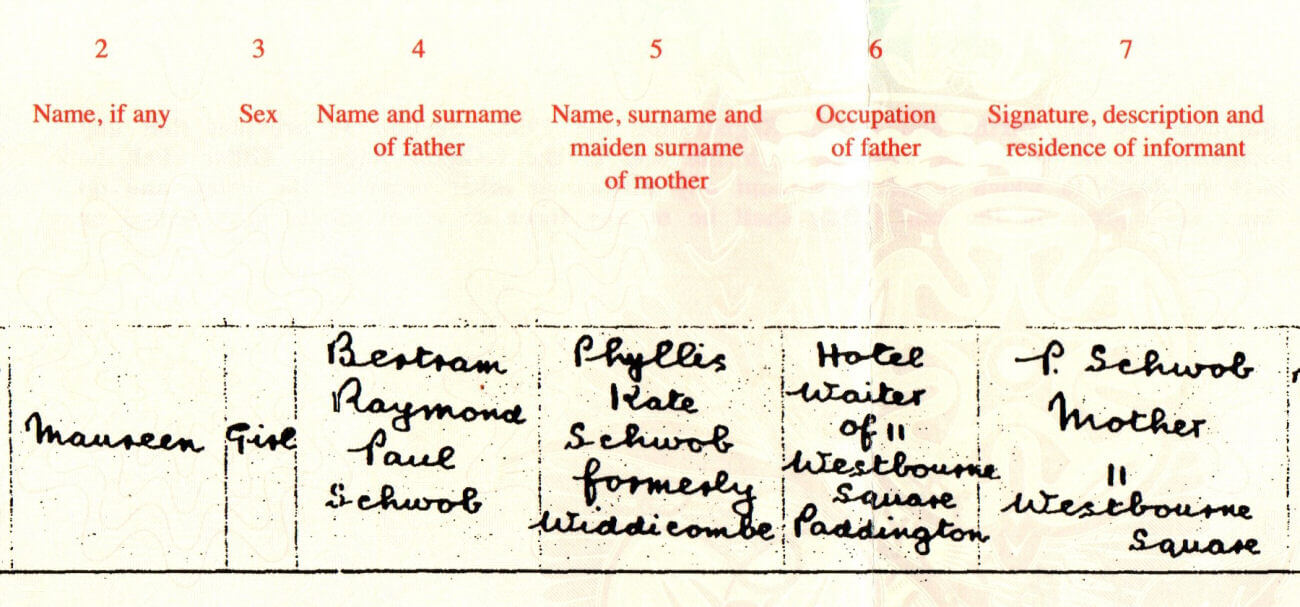 2
3
4
5
6
7
Name, if any
Sex
Name and surname
of father
Name, surname and
maiden surname
of mother
Occupation
of father
Signature, description and
residence of informant
Maureen
Girl
Bertram
Raymond
Paul
Schwob
Phyllis
Kate
Schwob
formerly
Widdicombe
Hotel
Waiter
of 11
Westbourne
Square
Paddington
P. Schwob
Mother
11
Westbourne
Square